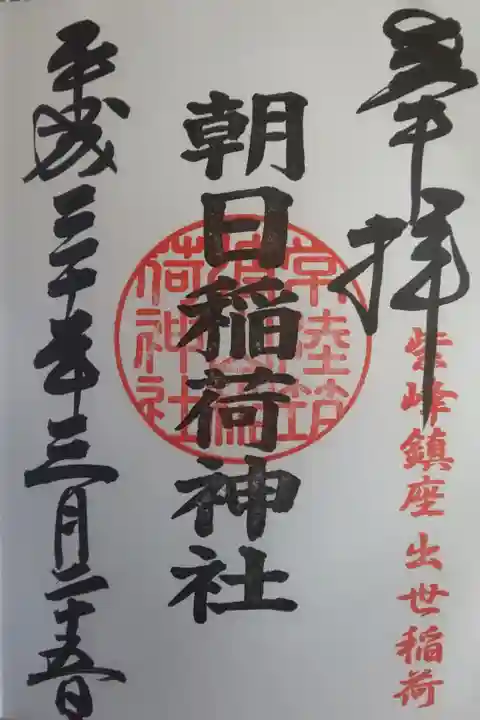 奉拝
紫峰鎮座出世稲荷
朝日稲荷神社
常陸筑
荷神社
平成三十年三月二十五日